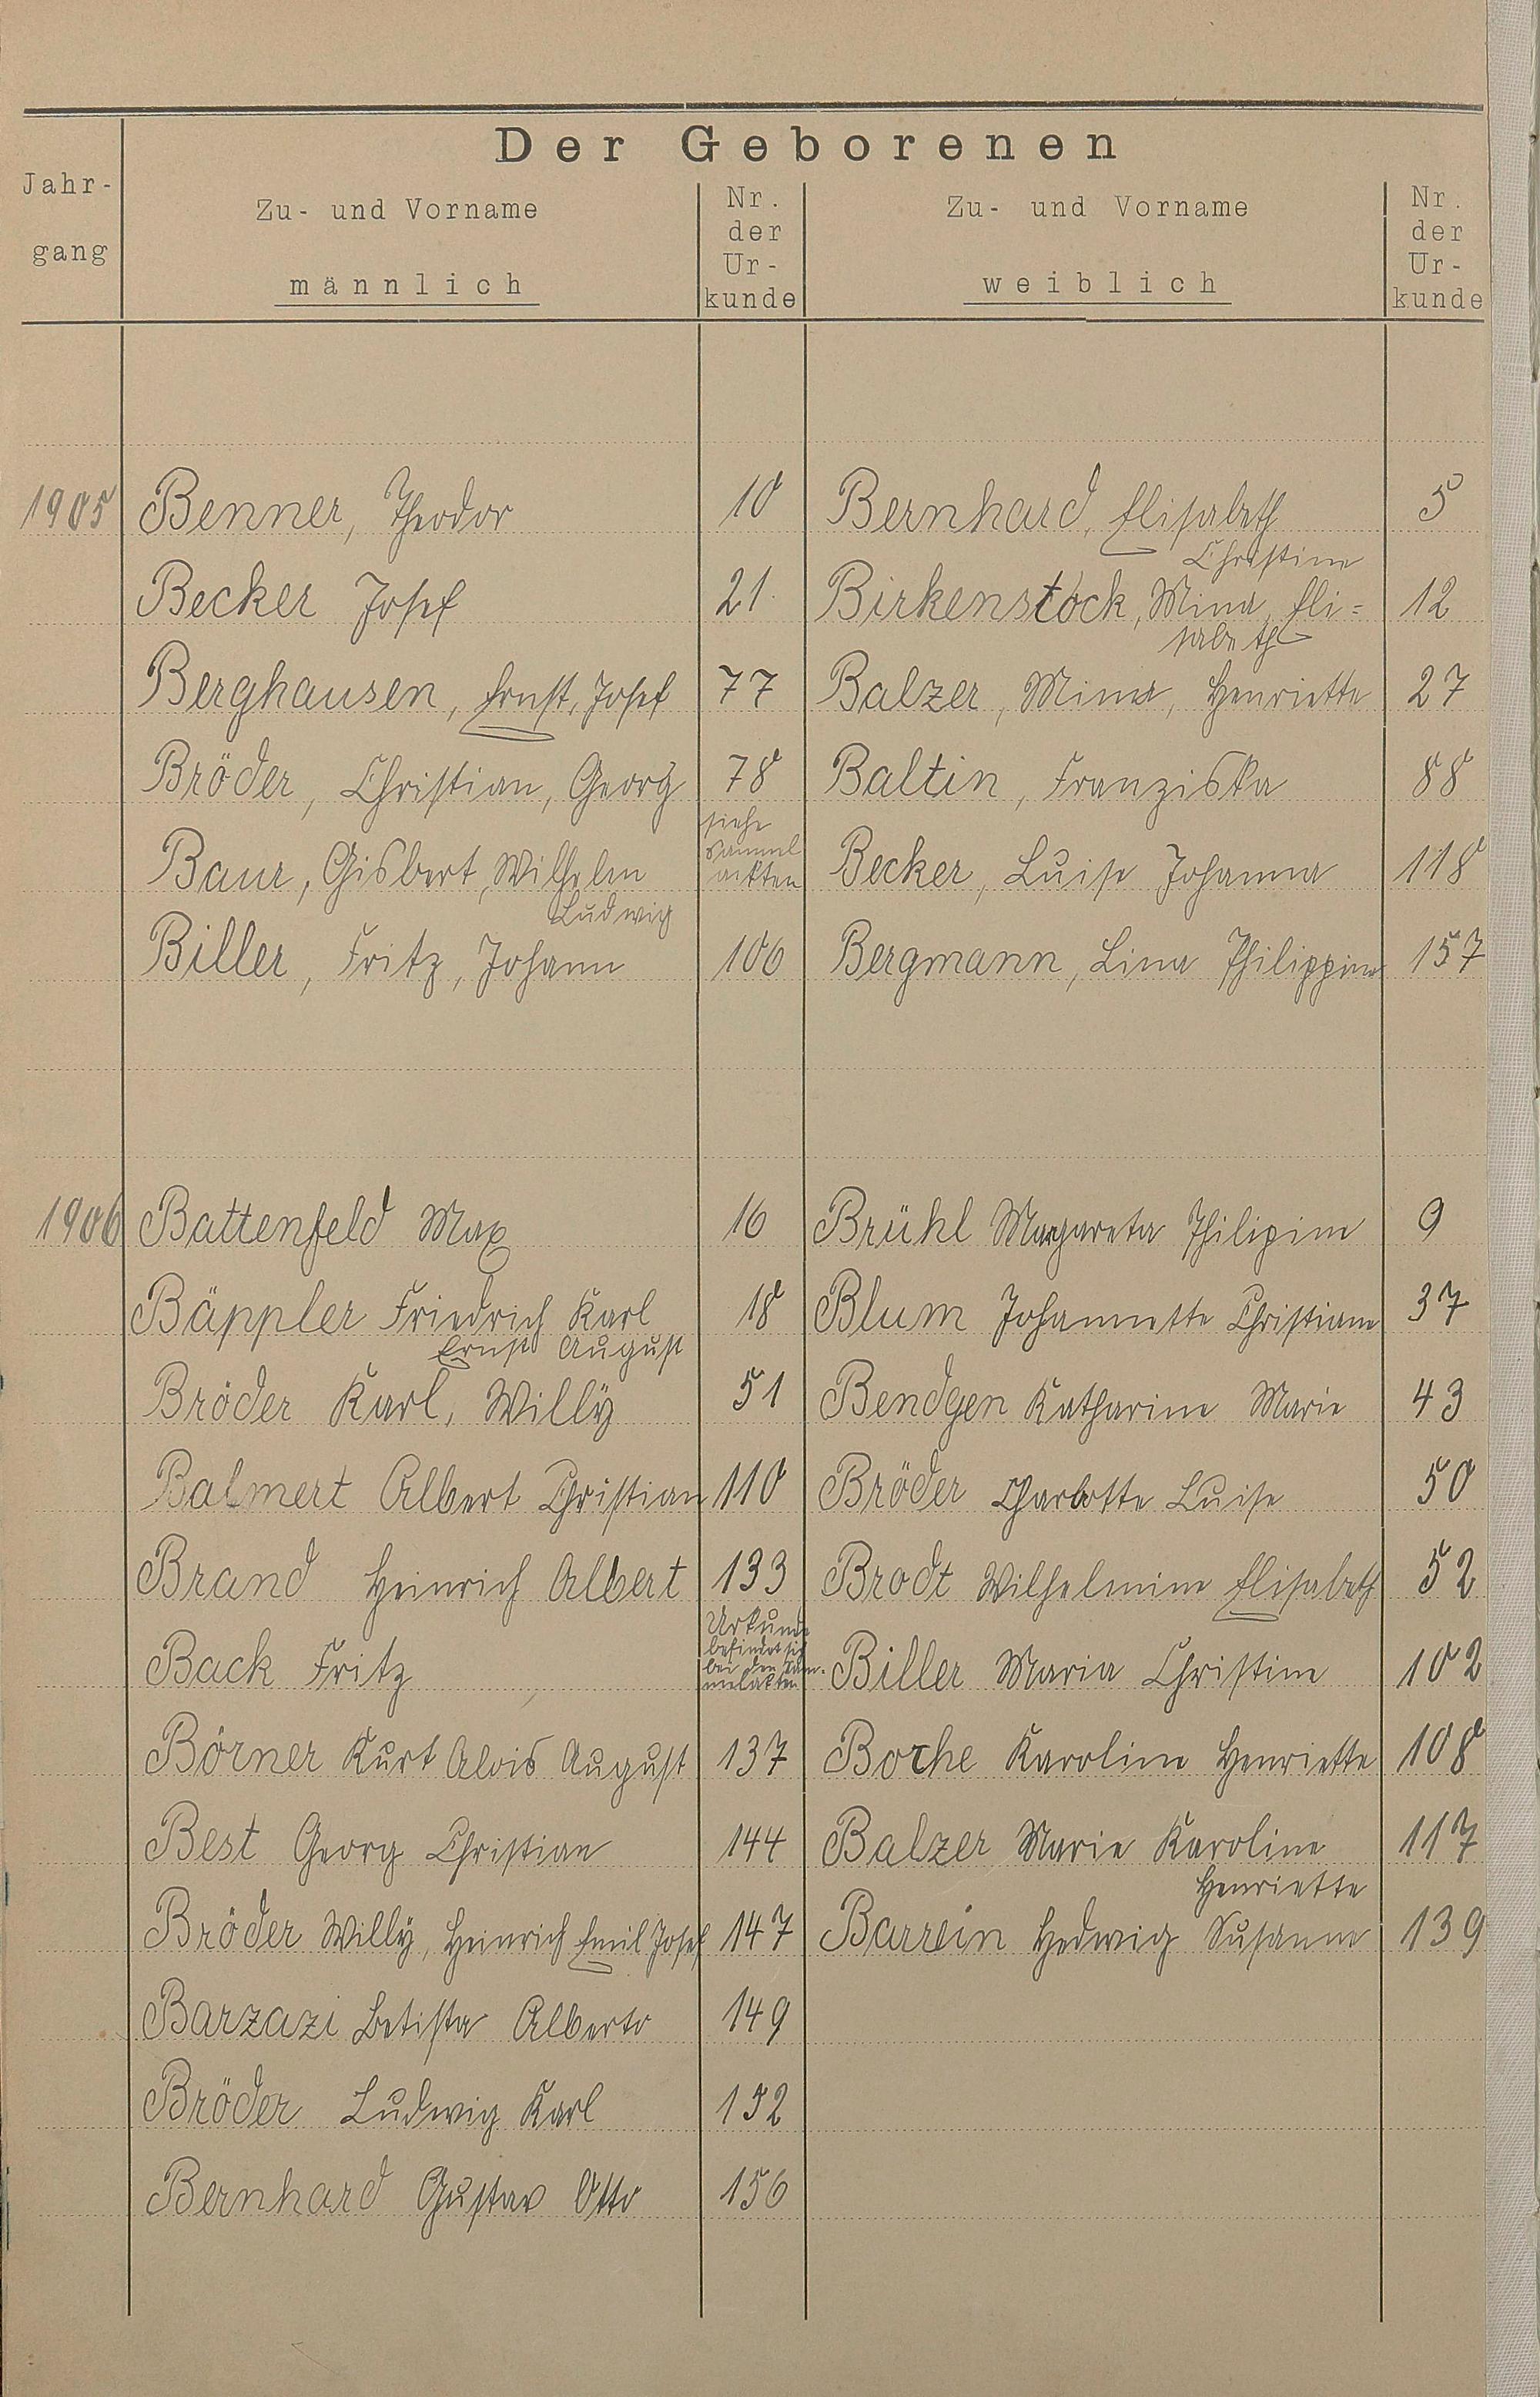 Der Geborenen
Jahr-
gang
Zu- und Vorname
männlich
Nr.
der
Ur-
kunde
Zu- und Vorname
weiblich
Nr.
der
Ur-
kunde
1905 Benner, Theodor 10 Bernhard, Elisabeth 5
Christine
Becker Josef 21. Birkenstock, Mina, Eli= 12
sabeth
Berghausen, Ernst, Josef 77 Balzer, Mina, Henriette 27
Bröder, Christian, Georg 78 Baltin, Franziska 88
Baur, Gisbert, Wilhelm siehe Sammel akten Becker, Luise Johanna 118
Ludwig
Biller, Fritz, Johann 106 Bergmann, Lina Philippine 157
1906 Battenfeld Max 16 Brühl Margareta Philipine 9
Bäppler Friedrich Karl 18 Blum Johannette Christiane 37
Ernst August
Bröder Karl, Willy 51 Bendgen Katharine Marie 43
Balmert Albert Christian 110 Bröder Charlotte Luise 50
Brand Heinrich Albert 133 Brodt Wilhelmine Elisabeth 52
Back Fritz Urkunde befindet sich bei den Sam- melakten Biller Maria Christine 102
Börner Kurt Alois August 137 Boche Karoline Henriette 108
Best Georg Christian 144 Balzer Marie Karoline 117
Henriette
Bröder Willy, Heinrich Emil Josef 147 Barrein Hedwig Susanne 139
Barzazi Betista Alberto 149
Bröder Ludwig Karl 152
Bernhard Gustav Otto 156